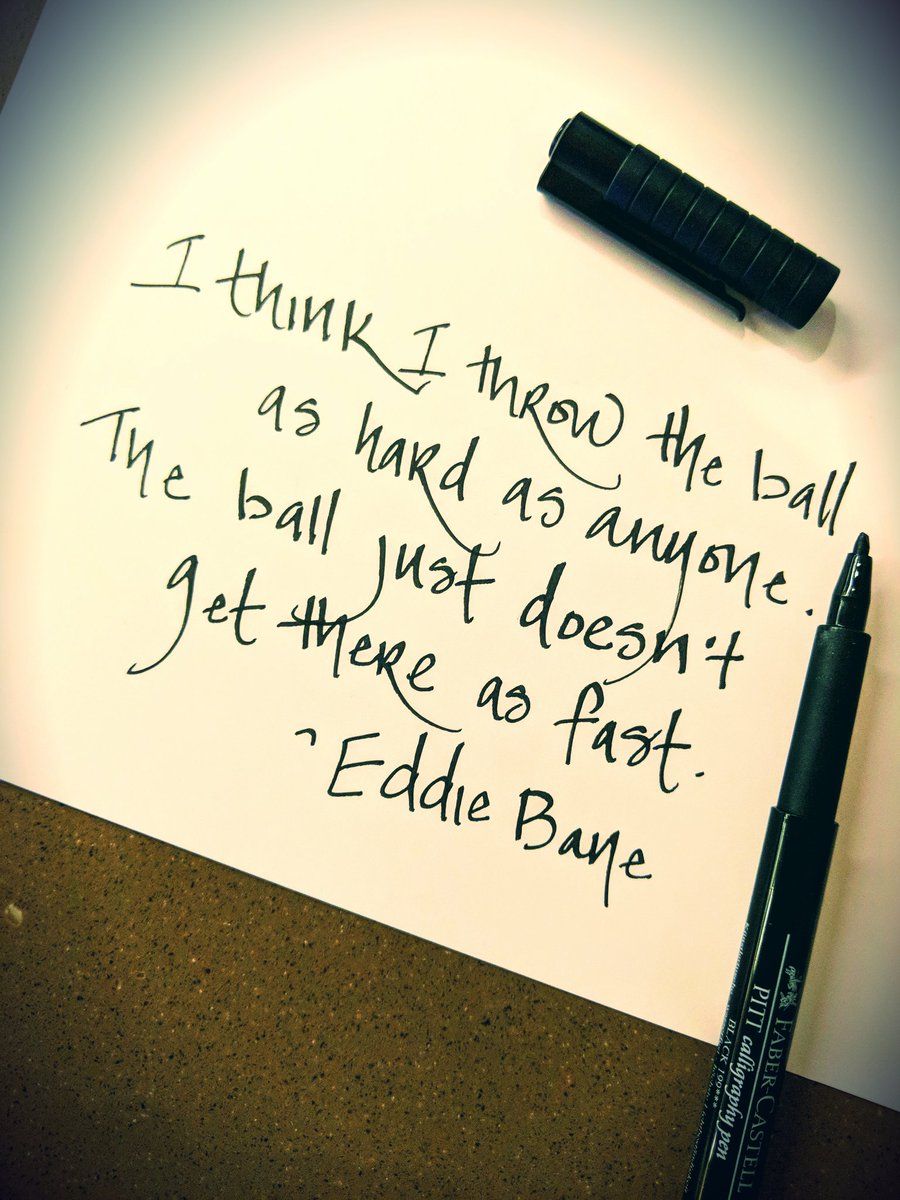 I think I throw the ball
as hard as anyone.
The ball just doesn't
get there as fast.
~ Eddie Bane
FABER-CASTELL
PITT calligraphy pen
BLACK 199***